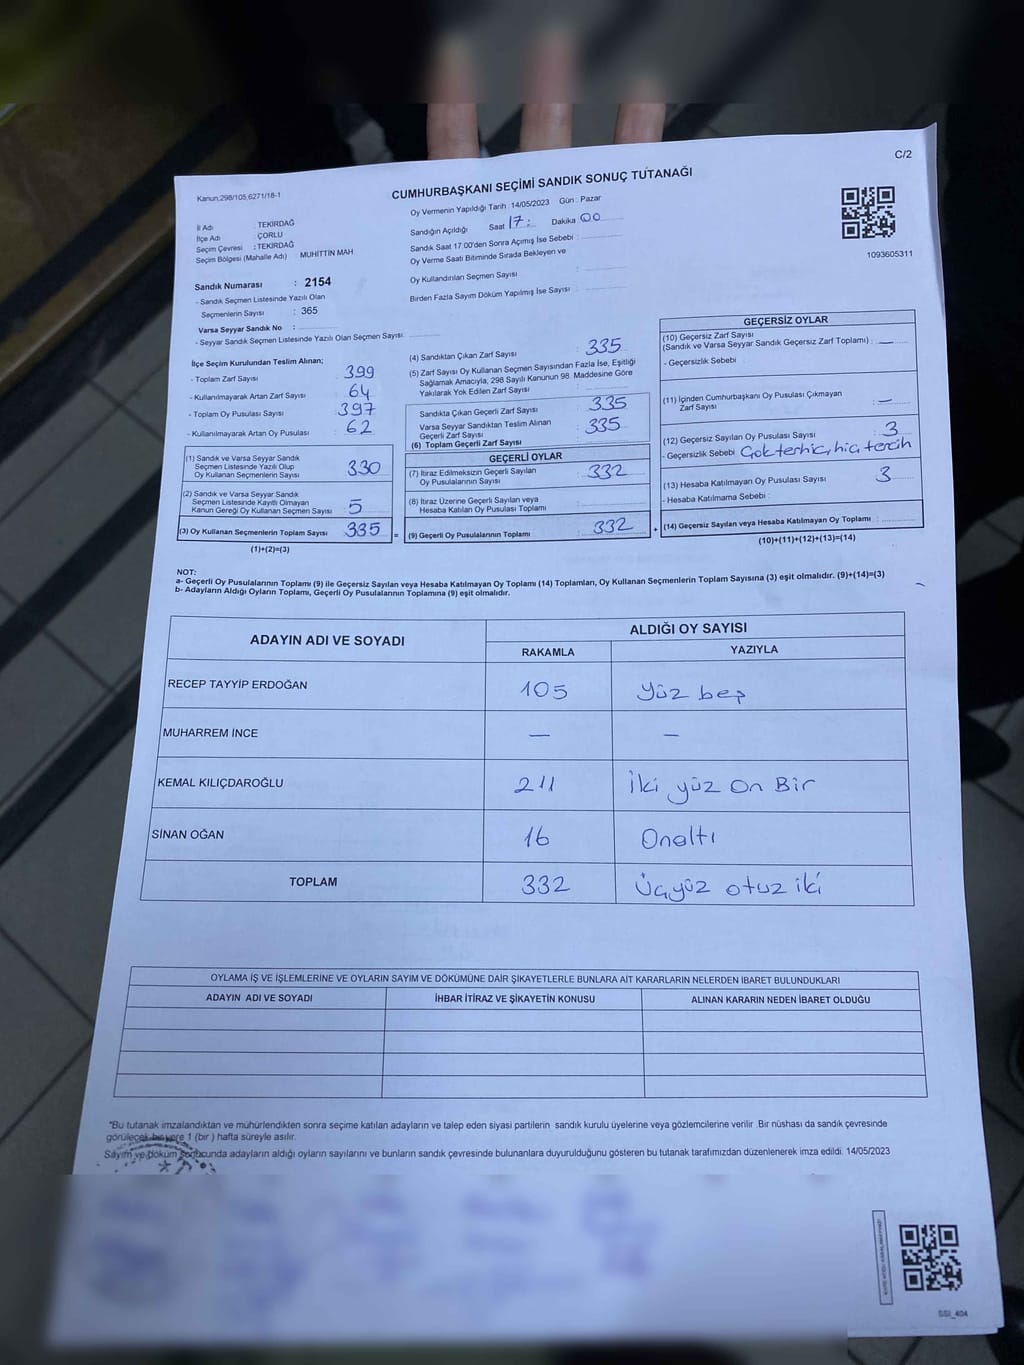 C/2
Kanun,298/105,6271/18-1
CUMHURBAŞKANI SEÇİMİ SANDIK SONUÇ TUTANAĞI
1093605311
İl Adı : TEKİRDAĞ
İlçe Adı : ÇORLU
Seçim Çevresi : TEKİRDAĞ
Seçim Bölgesi (Mahalle Adı) MUHITTIN MAH
Sandık Numarası : 2154
- Sandık Seçmen Listesinde Yazılı Olan
Seçmenlerin Sayısı : 365
Varsa Seyyar Sandık No :
- Seyyar Sandık Seçmen Listesinde Yazılı Olan Seçmen Sayısı:
Oy Vermenin Yapıldığı Tarih : 14/05/2023 Gün : Pazar
Sandığın Açıldığı Saat 17: Dakika 00
Sandık Saat 17:00'den Sonra Açımış İse Sebebi :
Oy Verme Saati Bitiminde Sırada Bekleyen ve
Oy Kullandırılan Seçmen Sayısı :
Birden Fazla Sayım Döküm Yapılmış İse Sayısı :
İlçe Seçim Kurulundan Teslim Alınan;
- Toplam Zarf Sayısı 399
- Kullanılmayarak Artan Zarf Sayısı 64
- Toplam Oy Pusulası Sayısı 397
- Kullanılmayarak Artan Oy Pusulası 62
(1) Sandık ve Varsa Seyyar Sandık
Seçmen Listesinde Yazılı Olup
Oy Kullanan Seçmenlerin Sayısı 330
(2) Sandık ve Varsa Seyyar Sandık
Seçmen Listesinde Kayıtlı Olmayan
Kanun Gereği Oy Kullanan Seçmen Sayısı 5
(3) Oy Kullanan Seçmenlerin Toplam Sayısı 335 =
(1)+(2)=(3)
(4) Sandıktan Çıkan Zarf Sayısı : 335
(5) Zarf Sayısı Oy Kullanan Seçmen Sayısından Fazla İse, Eşitliği
Sağlamak Amacıyla, 298 Sayılı Kanunun 98. Maddesine Göre
Yakılarak Yok Edilen Zarf Sayısı :
Sandıkta Çıkan Geçerli Zarf Sayısı : 335
Varsa Seyyar Sandıktan Teslim Alınan
Geçerli Zarf Sayısı : 335
(6) Toplam Geçerli Zarf Sayısı
GEÇERLİ OYLAR
(7) İtiraz Edilmeksizin Geçerli Sayılan
Oy Pusulalarının Sayısı : 332
(8) İtiraz Üzerine Geçerli Sayılan veya
Hesaba Katılan Oy Pusulası Toplamı :
(9) Geçerli Oy Pusulalarının Toplamı : 332 +
GEÇERSİZ OYLAR
(10) Geçersiz Zarf Sayısı
(Sandık ve Varsa Seyyar Sandık Geçersiz Zarf Toplamı) : —
- Geçersizlik Sebebi :
(11) İçinden Cumhurbaşkanı Oy Pusulası Çıkmayan
Zarf Sayısı : —
(12) Geçersiz Sayılan Oy Pusulası Sayısı : 3
- Geçersizlik Sebebi : Çok terhic, hiç tercih
(13) Hesaba Katılmayan Oy Pusulası Sayısı : 3
- Hesaba Katılmama Sebebi :
(14) Geçersiz Sayılan veya Hesaba Katılmayan Oy Toplamı :
(10)+(11)+(12)+(13)=(14)
NOT:
a- Geçerli Oy Pusulalarının Toplamı (9) ile Geçersiz Sayılan veya Hesaba Katılmayan Oy Toplamı (14) Toplamları, Oy Kullanan Seçmenlerin Toplam Sayısına (3) eşit olmalıdır. (9)+(14)=(3)
b- Adayların Aldığı Oyların Toplamı, Geçerli Oy Pusulalarının Toplamına (9) eşit olmalıdır.
ADAYIN ADI VE SOYADI ALDIĞI OY SAYISI
RAKAMLA YAZIYLA
RECEP TAYYİP ERDOĞAN 105 Yüz beş
MUHARREM İNCE — —
KEMAL KILIÇDAROĞLU 211 İki yüz On Bir
SİNAN OĞAN 16 Onaltı
TOPLAM 332 Üçyüz otuz iki
OYLAMA İŞ VE İŞLEMLERİNE VE OYLARIN SAYIM VE DÖKÜMÜNE DAİR ŞİKAYETLERLE BUNLARA AİT KARARLARIN NELERDEN İBARET BULUNDUKLARI
ADAYIN ADI VE SOYADI İHBAR İTİRAZ VE ŞİKAYETİN KONUSU ALINAN KARARIN NEDEN İBARET OLDUĞU
"Bu tutanak imzalandıktan ve mühürlendikten sonra seçime katılan adayların ve talep eden siyasi partilerin sandık kurulu üyelerine veya gözlemcilerine verilir .Bir nüshası da sandık çevresinde
görülecek bir yere 1 (bir ) hafta süreyle asılır.
Sayım ve döküm sonucunda adayların aldığı oyların sayılarını ve bunların sandık çevresinde bulunanlara duyurulduğunu gösteren bu tutanak tarafımızdan düzenlenerek imza edildi. 14/05/2023
SSI_404